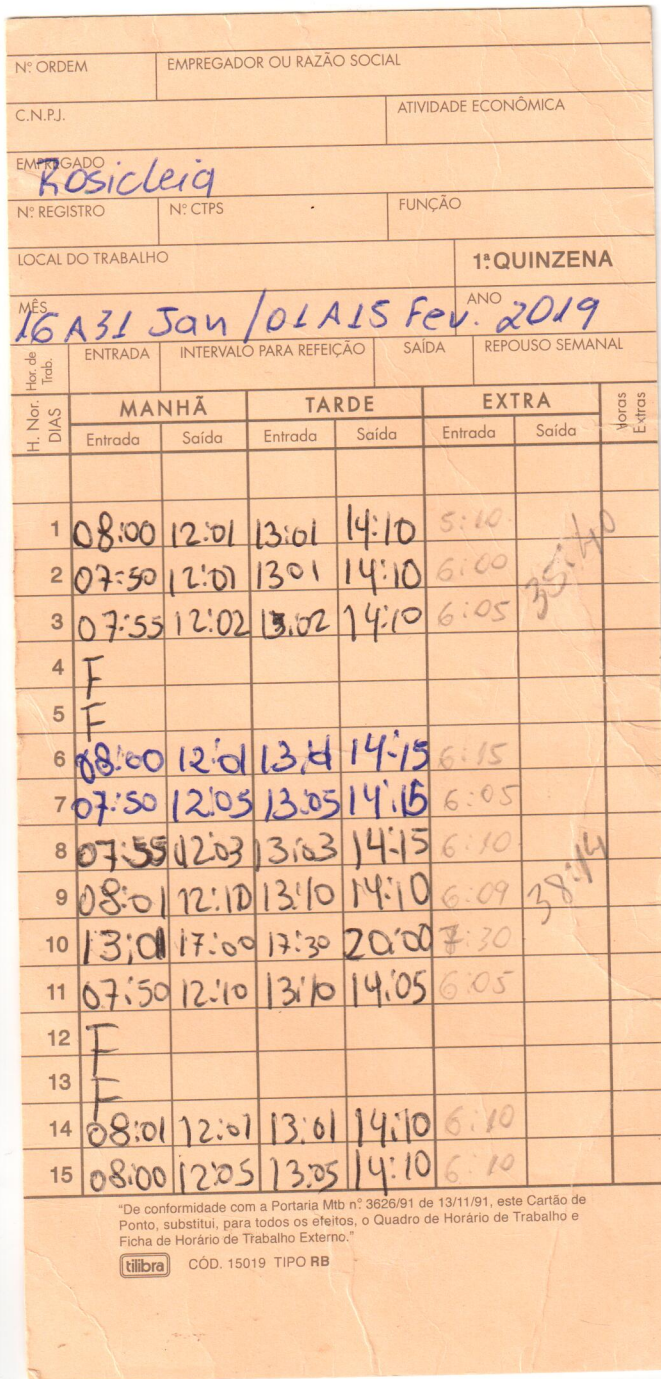 Nº ORDEM EMPREGADOR OU RAZÃO SOCIAL
C.N.P.J. ATIVIDADE ECONÔMICA
EMPREGADO
Rosicleia
Nº REGISTRO Nº CTPS FUNÇÃO
LOCAL DO TRABALHO 1ª QUINZENA
MÊS ANO
16 A 31 Jan / 01 A 15 Fev. 2019
Hor. de Trab. ENTRADA INTERVALO PARA REFEIÇÃO SAÍDA REPOUSO SEMANAL
H. Nor. DIAS MANHÃ TARDE EXTRA Horas Extras
Entrada Saída Entrada Saída Entrada Saída
1 08:00 12:01 13:01 14:10 5:10
2 07:50 12:01 13:01 14:10 6:00 35:40
3 07:55 12:02 13:02 14:10 6:05
4 F
5 F
6 08:00 12:01 13:01 14:15 6:15
7 07:50 12:05 13:05 14:15 6:05
8 07:55 12:03 13:03 14:15 6:10
9 08:01 12:10 13:10 14:10 6:09 38:14
10 13:01 17:00 17:30 20:00 7:30
11 07:50 12:10 13:10 14:05 6:05
12 F
13 F
14 08:01 12:01 13:01 14:10 6:10
15 08:00 12:05 13:05 14:10 6:10
"De conformidade com a Portaria Mtb nº 3626/91 de 13/11/91, este Cartão de
Ponto, substitui, para todos os efeitos, o Quadro de Horário de Trabalho e
Ficha de Horário de Trabalho Externo."
tilibra CÓD. 15019 TIPO RB